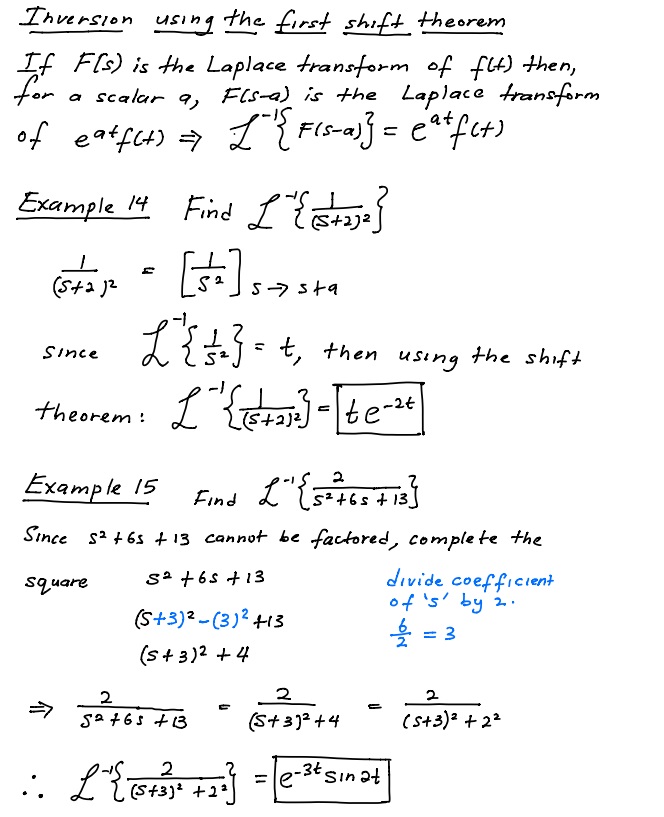 Inversion using the first shift theorem
If F(s) is the Laplace transform of f(t) then,
for a scalar a, F(s-a) is the Laplace transform
of e^{at}f(t) ⇒ ℒ^{-1}{F(s-a)} = e^{at}f(t)
Example 14 Find ℒ^{-1}{1/(s+2)^2}
1/(s+2)^2 = [1/s^2] s→s+a
since ℒ^{-1}{1/s^2} = t, then using the shift
theorem: ℒ^{-1}{1/(s+2)^2} = te^{-2t}
Example 15 Find ℒ^{-1}{2/(s^2+6s+13)}
Since s^2+6s+13 cannot be factored, complete the
square s^2+6s+13 divide coefficient
of 's' by 2.
(s+3)^2-(3)^2+13 6/2 = 3
(s+3)^2+4
⇒ 2/(s^2+6s+13) = 2/((s+3)^2+4) = 2/((s+3)^2+2^2)
∴ ℒ^{-1}{2/((s+3)^2+2^2)} = e^{-3t} sin 2t